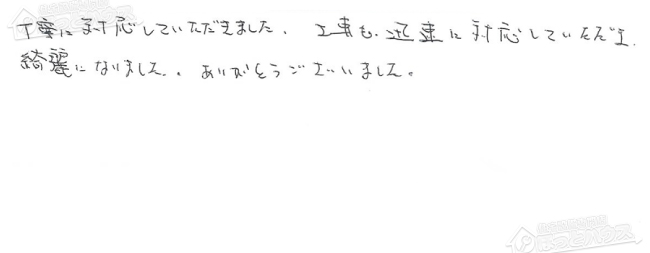 丁寧に対応していただきました、工事も迅速に対応していただき、
綺麗になりました。ありがとうございました。